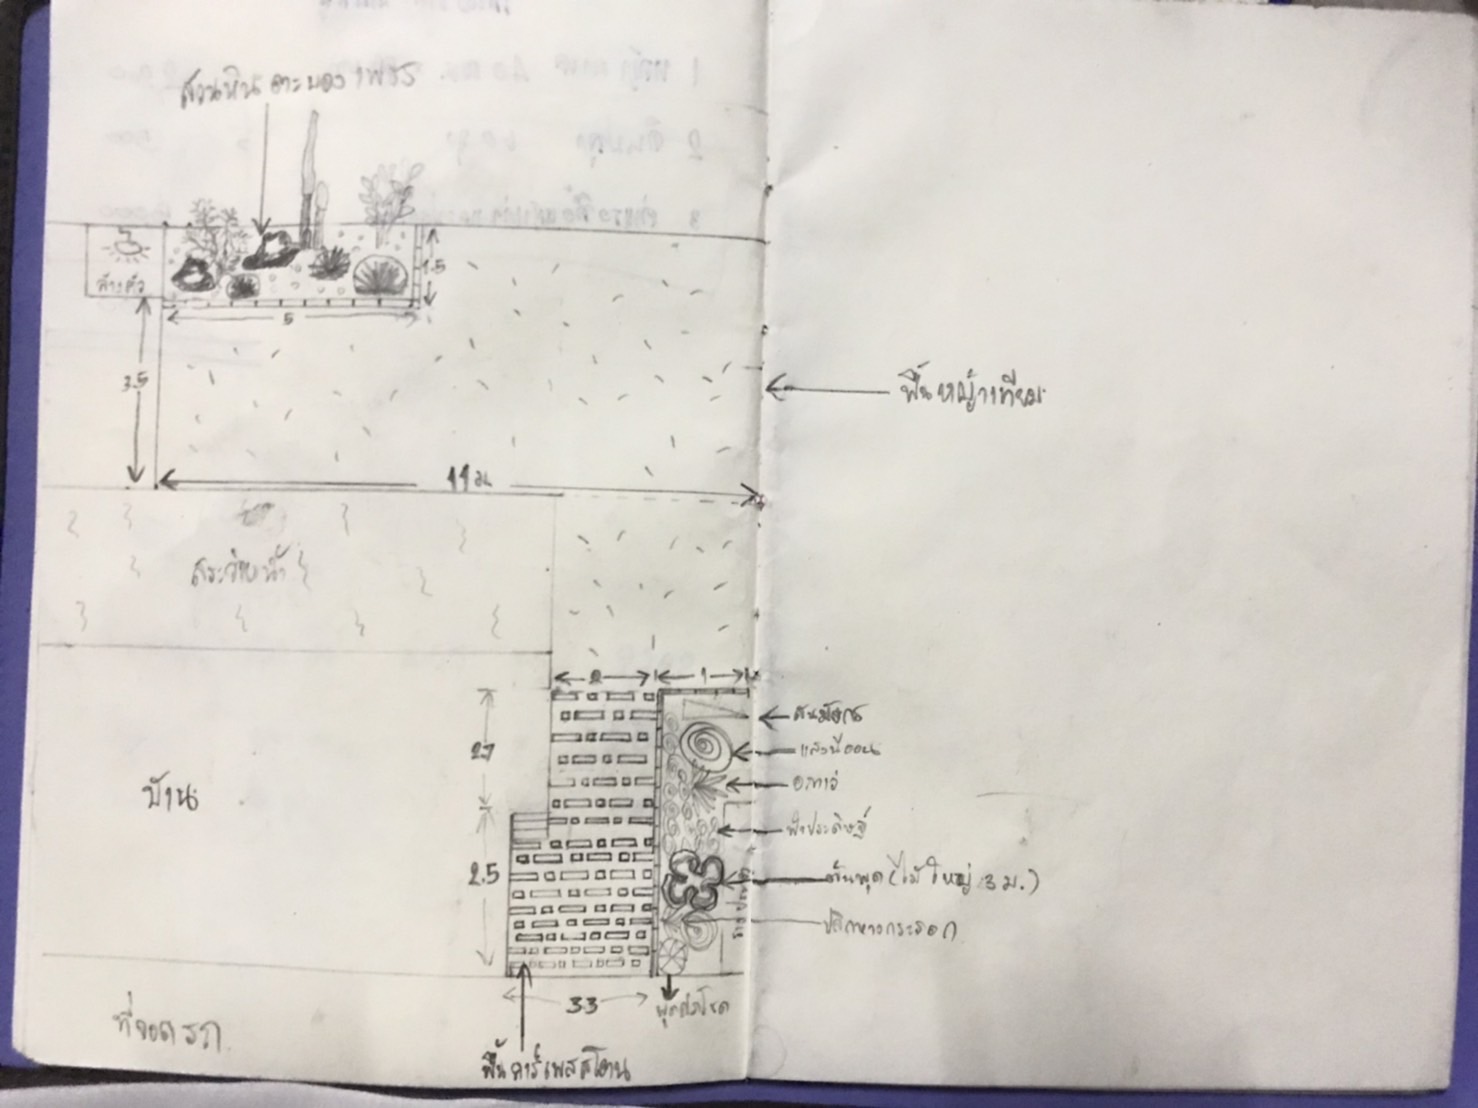 สวนหิน ตะบองเพชร
ล้างตัว
1.5
5
3.5
พื้นหญ้าเทียม
11 ม
สระว่ายน้ำ
2
1
สนมังกร
2.7
อกาเว่
บ้าน
หญ้าประดิษฐ์
2.5
ต้นพุด (ไม้ใหญ่ 3 ม.)
ปริกหางกระรอก
3.3
พุดศุภโชค
ที่จอดรถ
พื้นคาร์เพสสโตน